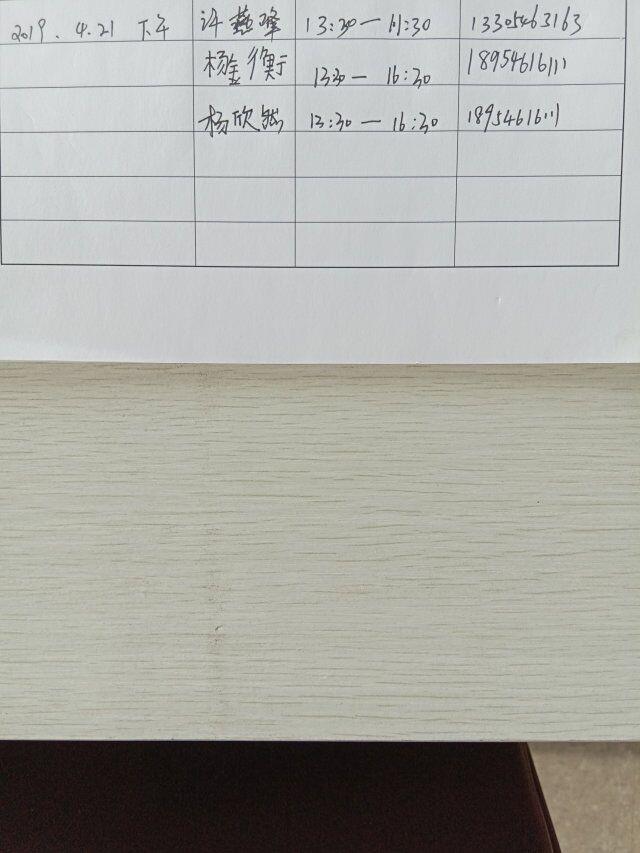 2019.4.21 下午 许燕峰 13:30—16:30 13305463163
杨金衡 1330—16:30 18954616111
杨欣然 13:30—16:30 18954616111